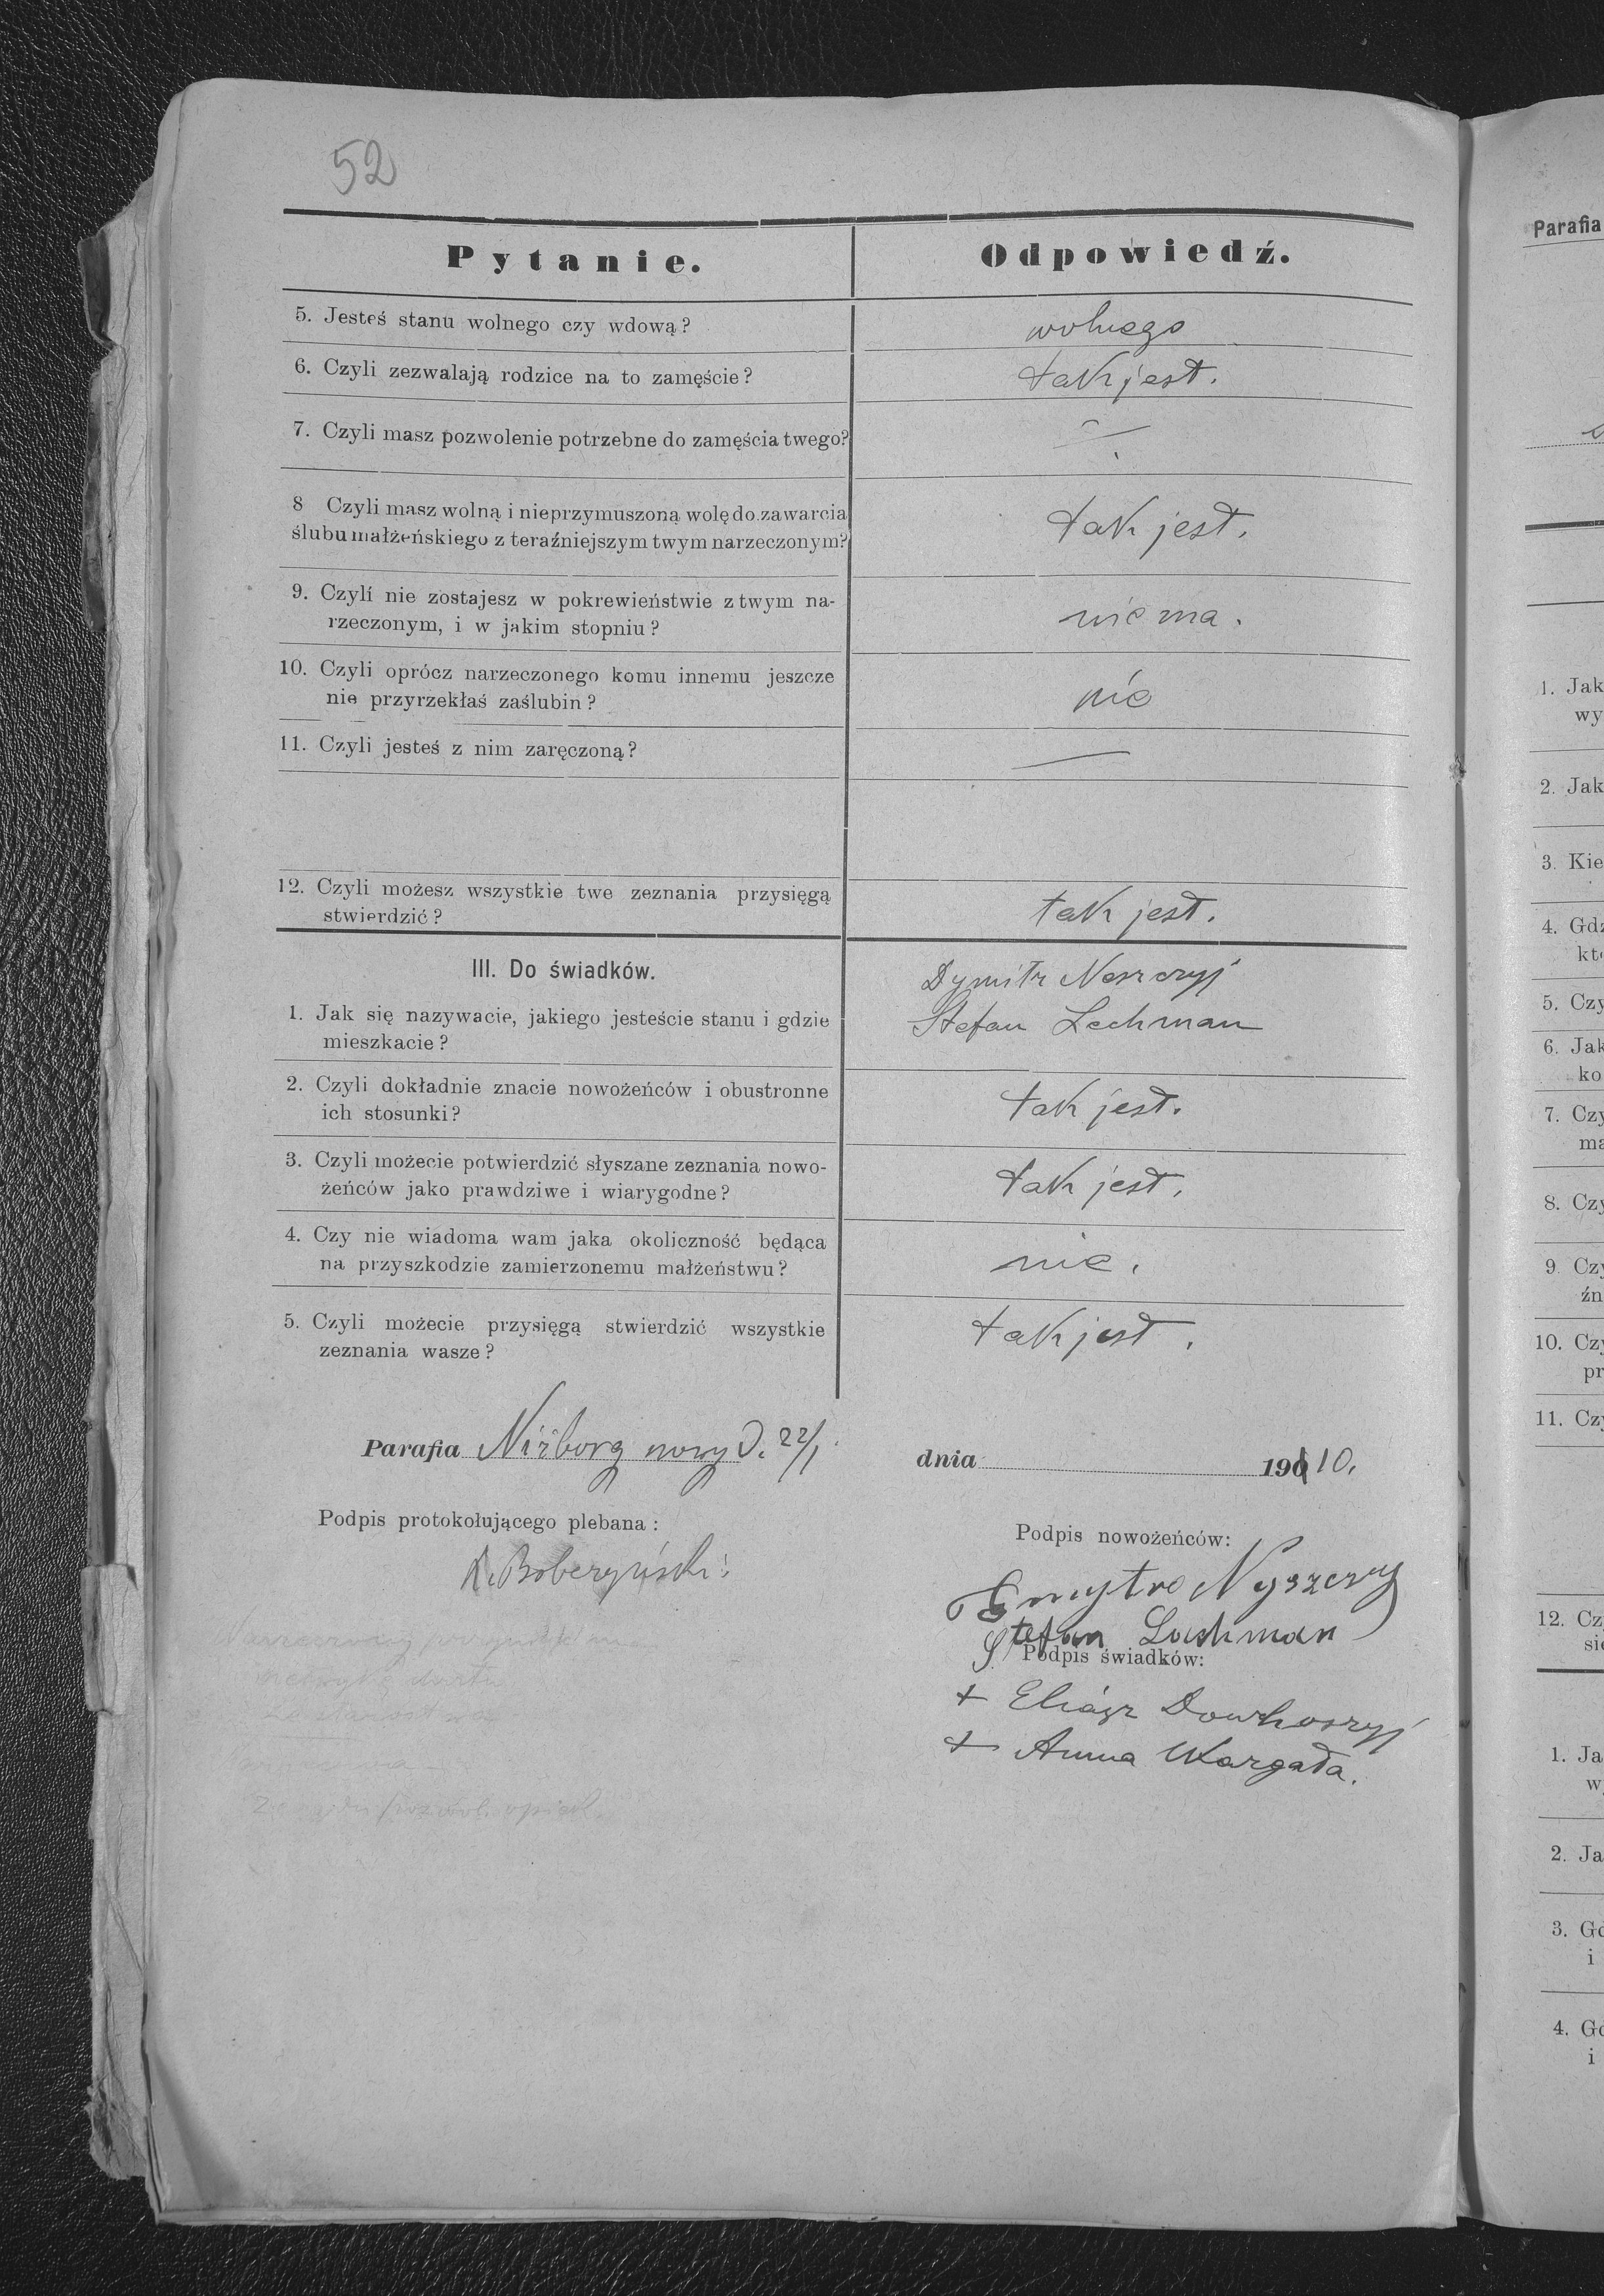 52
Pytanie.
Odpowiedź.
5. Jesteś stanu wolnego czy wdową?
wolnego
6. Czyli zezwalają rodzice na to zamęście?
tak jest.
7. Czyli masz pozwolenie potrzebne do zamęścia twego?
8 Czyli masz wolną i nieprzymuszoną wolę do zawarcia
ślubu małżeńskiego z teraźniejszym twym narzeczonym?
tak jest.
9. Czyli nie zostajesz w pokrewieństwie z twym na-
rzeczonym, i w jakim stopniu?
nie ma.
10. Czyli oprócz narzeczonego komu innemu jeszcze
nie przyrzekłaś zaślubin?
nie
11. Czyli jesteś z nim zaręczoną?
—
12. Czyli możesz wszystkie twe zeznania przysięgą
stwierdzić?
tak jest.
III. Do świadków.
1. Jak się nazywacie, jakiego jesteście stanu i gdzie
mieszkacie?
Dymitr
Stefan Lechman
2. Czyli dokładnie znacie nowożeńców i obustronne
ich stosunki?
tak jest.
3. Czyli możecie potwierdzić słyszane zeznania nowo-
żeńców jako prawdziwe i wiarygodne?
tak jest.
4. Czy nie wiadoma wam jaka okoliczność będąca
na przyszkodzie zamierzonemu małżeństwu?
nie.
5. Czyli możecie przysięgą stwierdzić wszystkie
zeznania wasze?
tak jest.
Parafia Niżborg nowy D. 22/1
dnia 190 10.
Podpis protokołującego plebana:
Podpis nowożeńców:
Nyszczyj
Stefan Lashman
Podpis świadków:
+ Eliasz
+ Anna Wargała.
Parafia
1. Jak
wy
2. Jak
3. Kie
4. Gdz
kt
5. Czy
6. Jak
ko
7. Czy
ma
8. Czy
9. Czy
źn
10. Czy
pr
11. Czy
12. Cz
si
1. Ja
w
2. Ja
3. Gd
i
4. Gd
i